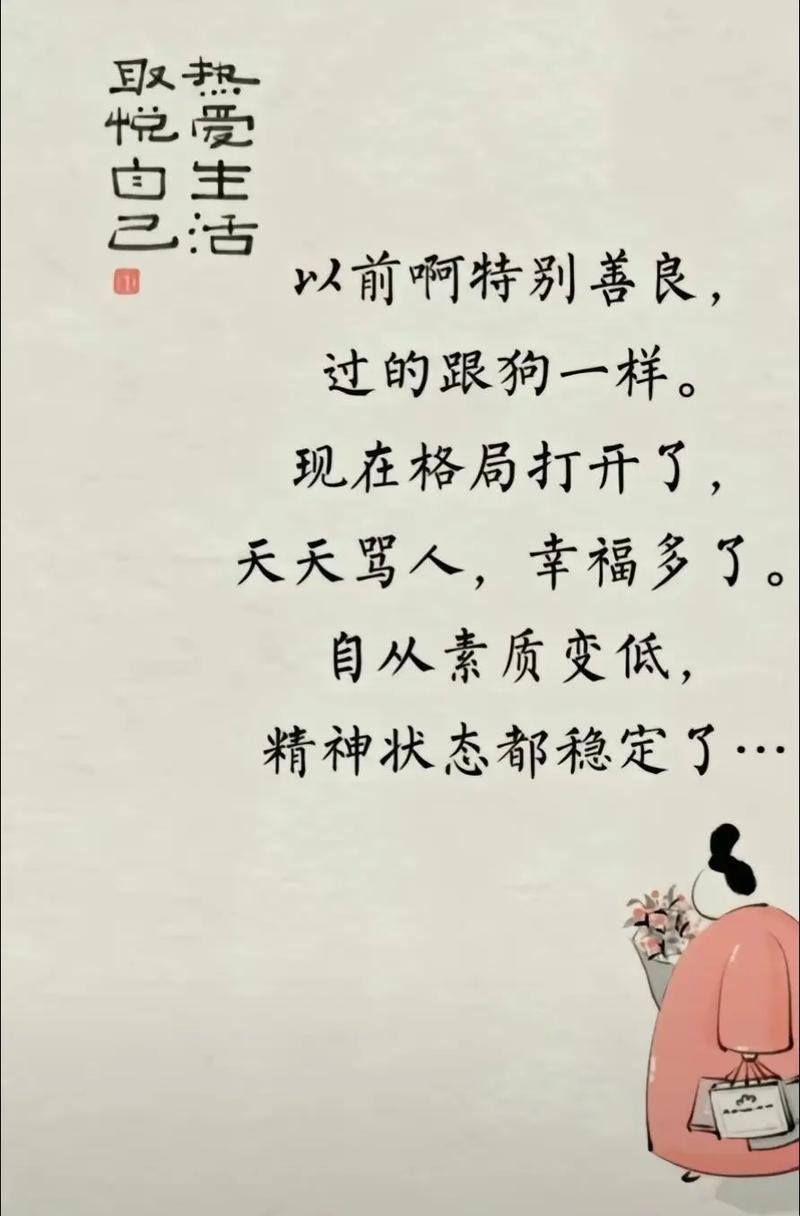 热爱生活
取悦自己
以前啊特别善良，
过的跟狗一样。
现在格局打开了，
天天骂人，幸福多了。
自从素质变低，
精神状态都稳定了…